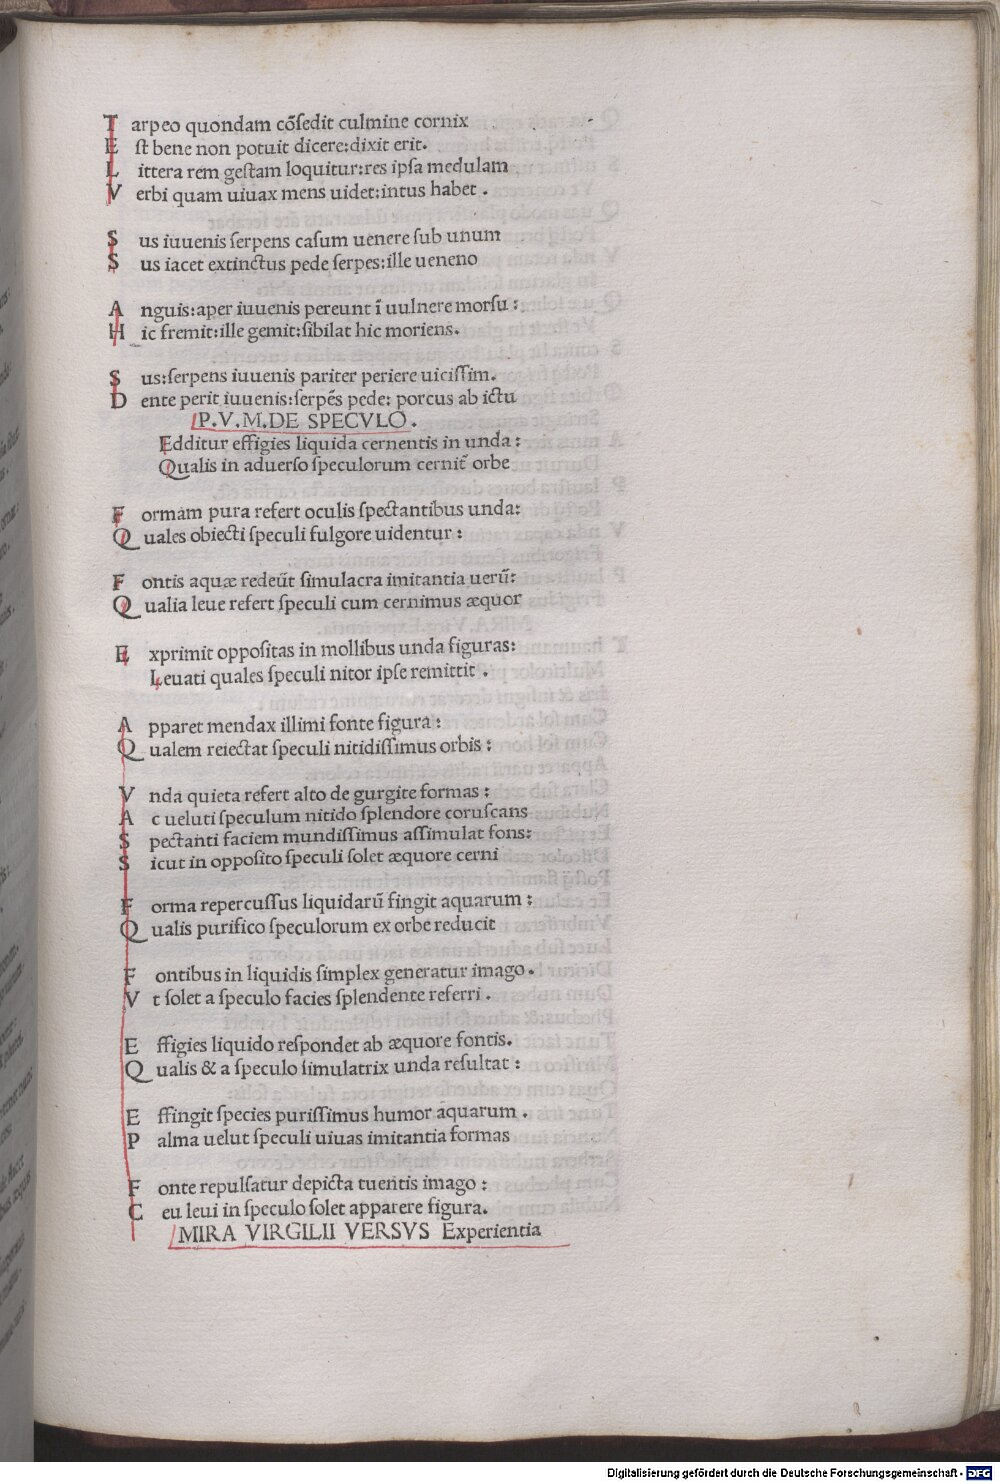 T arpeo quondam cōſedit culmine cornix
E ſt bene non potuit dicere:dixit erit.
L ittera rem geſtam loquitur:res ipſa medulam
V erbi quam uiuax mens uidet:intus habet .
S us iuuenis ſerpens caſum uenere ſub unum
S us iacet extinctus pede ſerpēs:ille ueneno
A nguis:aper iuuenis pereunt ī uulnere morſu :
H ic fremit:ille gemit:ſibilat hic moriens.
S us:ſerpens iuuenis pariter periere uiciſſim.
D ente perit iuuenis:ſerpēs pede: porcus ab ictu
P.V.M.DE SPECVLO.
Edditur effigies liquida cernentis in unda :
Qualis in aduerſo ſpeculorum cernit̄ orbe
F ormam pura refert oculis ſpectantibus unda:
Q uales obiecti ſpeculi fulgore uidentur :
F ontis aquæ redeūt ſimulacra imitantia uerū:
Q ualia leue refert ſpeculi cum cernimus æquor
E xprimit oppoſitas in mollibus unda figuras:
Leuati quales ſpeculi nitor ipſe remittit .
A pparet mendax illimi fonte figura :
Q ualem reiectat ſpeculi nitidiſſimus orbis :
V nda quieta refert alto de gurgite formas :
A c ueluti ſpeculum nitido ſplendore coruſcans
S pectanti faciem mundiſſimus aſſimulat fons:
S icut in oppoſito ſpeculi ſolet æquore cerni
F orma repercuſſus liquidarū fingit aquarum :
Q ualis purifico ſpeculorum ex orbe reducit
F ontibus in liquidis ſimplex generatur imago.
V t ſolet a ſpeculo facies ſplendente referri .
E ffigies liquido reſpondet ab æquore fontis.
Q ualis & a ſpeculo ſimulatrix unda reſultat :
E ffingit ſpecies puriſſimus humor aquarum .
P alma uelut ſpeculi uiuas imitantia formas
F onte repulſatur depicta tuentis imago :
C eu leui in ſpeculo ſolet apparere figura.
MIRA VIRGILII VERSVS Experientia
Digitalisierung gefördert durch die Deutsche Forschungsgemeinschaft - DFG